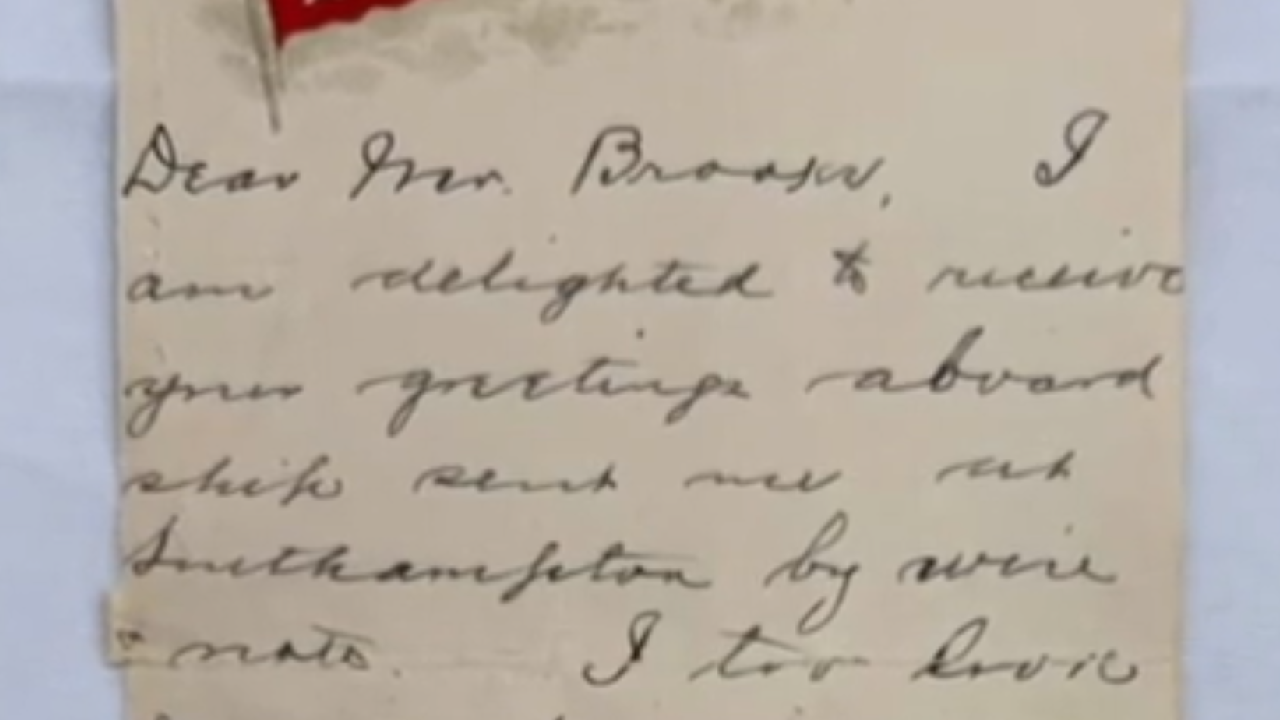 Dear Mr. Brooks, I
am delighted to receive
your greetings aboard
ship sent me at
Southampton by wire
note. I too